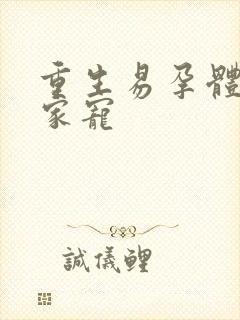 重生易孕體
家寵
誠儀鯉